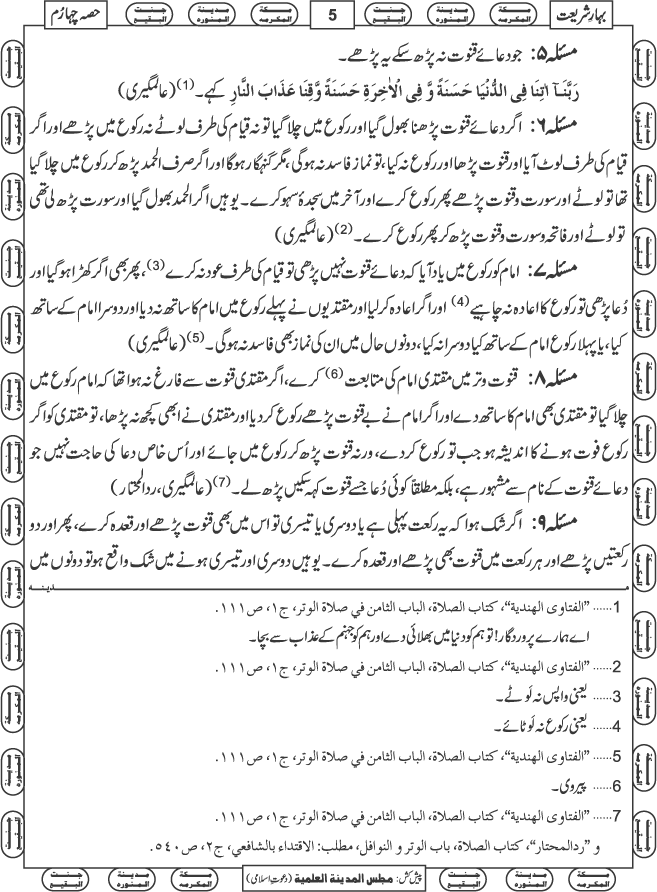 بہارِ شریعت
5
حصہ چہارم
مسئلہ ۵: جو دعائے قنوت نہ پڑھ سکے یہ پڑھے۔
رَبَّنَآ اٰتِنَا فِی الدُّنْیَا حَسَنَۃً وَّ فِی الْاٰخِرَۃِ حَسَنَۃً وَّقِنَا عَذَابَ النَّارِ کہے۔ (1) (عالمگیری)
مسئلہ ۶: اگر دعائے قنوت پڑھنا بھول گیا اور رکوع میں چلا گیا تو نہ قیام کی طرف لوٹے نہ رکوع میں پڑھے اور اگر
قیام کی طرف لوٹ آیا اور قنوت پڑھا اور رکوع نہ کیا، تو نماز فاسد نہ ہوگی، مگر گنہگار ہوگا اور اگر صرف الحمد پڑھ کر رکوع میں چلا گیا
تھا تو لوٹے اور سورت و قنوت پڑھے پھر رکوع کرے اور آخر میں سجدۂ سہو کرے۔ یوہیں اگر الحمد بھول گیا اور سورت پڑھ لی تھی
تو لوٹے اور فاتحہ و سورت و قنوت پڑھ کر پھر رکوع کرے۔ (2) (عالمگیری)
مسئلہ ۷: امام کو رکوع میں یاد آیا کہ دعائے قنوت نہیں پڑھی تو قیام کی طرف عود نہ کرے (3)، پھر بھی اگر کھڑا ہوگیا اور
دُعا پڑھی تو رکوع کا اعادہ نہ چاہیے (4) اور اگر اعادہ کر لیا اور مقتدیوں نے پہلے رکوع میں امام کا ساتھ نہ دیا اور دوسرا امام کے ساتھ
کیا، یا پہلا رکوع امام کے ساتھ کیا دوسرا نہ کیا، دونوں حال میں ان کی نماز بھی فاسد نہ ہوگی۔ (5) (عالمگیری)
مسئلہ ۸: قنوت وتر میں مقتدی امام کی متابعت (6) کرے، اگر مقتدی قنوت سے فارغ نہ ہوا تھا کہ امام رکوع میں
چلا گیا تو مقتدی بھی امام کا ساتھ دے اور اگر امام نے بے قنوت پڑھے رکوع کر دیا اور مقتدی نے ابھی کچھ نہ پڑھا، تو مقتدی کو اگر
رکوع فوت ہونے کا اندیشہ ہو جب تو رکوع کر دے، ورنہ قنوت پڑھ کر رکوع میں جائے اور اُس خاص دعا کی حاجت نہیں جو
دعائے قنوت کے نام سے مشہور ہے، بلکہ مطلقاً کوئی دُعا جسے قنوت کہہ سکیں پڑھ لے۔ (7) (عالمگیری، ردالمحتار)
مسئلہ ۹: اگر شک ہوا کہ یہ رکعت پہلی ہے یا دوسری یا تیسری تو اس میں بھی قنوت پڑھے اور قعدہ کرے، پھر اور دو
رکعتیں پڑھے اور ہر رکعت میں قنوت بھی پڑھے اور قعدہ کرے۔ یوہیں دوسری اور تیسری ہونے میں شک واقع ہو تو دونوں میں
1 ...... ”الفتاوی الھندیة“، کتاب الصلاة، الباب الثامن في صلاة الوتر، ج۱، ص۱۱۱.
اے ہمارے پروردگار! تو ہم کو دنیا میں بھلائی دے اور ہم کو جہنم کے عذاب سے بچا۔
2 ...... ”الفتاوی الھندیة“، کتاب الصلاة، الباب الثامن في صلاة الوتر، ج۱، ص۱۱۱.
3 ...... یعنی واپس نہ لَوٹے۔
4 ...... یعنی رکوع نہ لَوٹائے۔
5 ...... ”الفتاوی الھندیة“، کتاب الصلاة، الباب الثامن في صلاة الوتر، ج۱، ص۱۱۱.
6 ...... پیروی۔
7 ...... ”الفتاوی الھندیة“، کتاب الصلاة، الباب الثامن في صلاة الوتر، ج۱، ص۱۱۱.
و ”ردالمحتار“، کتاب الصلاة، باب الوتر و النوافل، مطلب: الاقتداء بالشافعي، ج۲، ص۵٤۰.
پیش کش: مجلس المدینة العلمیة (دعوتِ اسلامی)